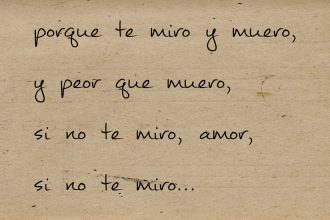 porque te miro y muero,
y peor que muero,
si no te miro, amor,
si no te miro...